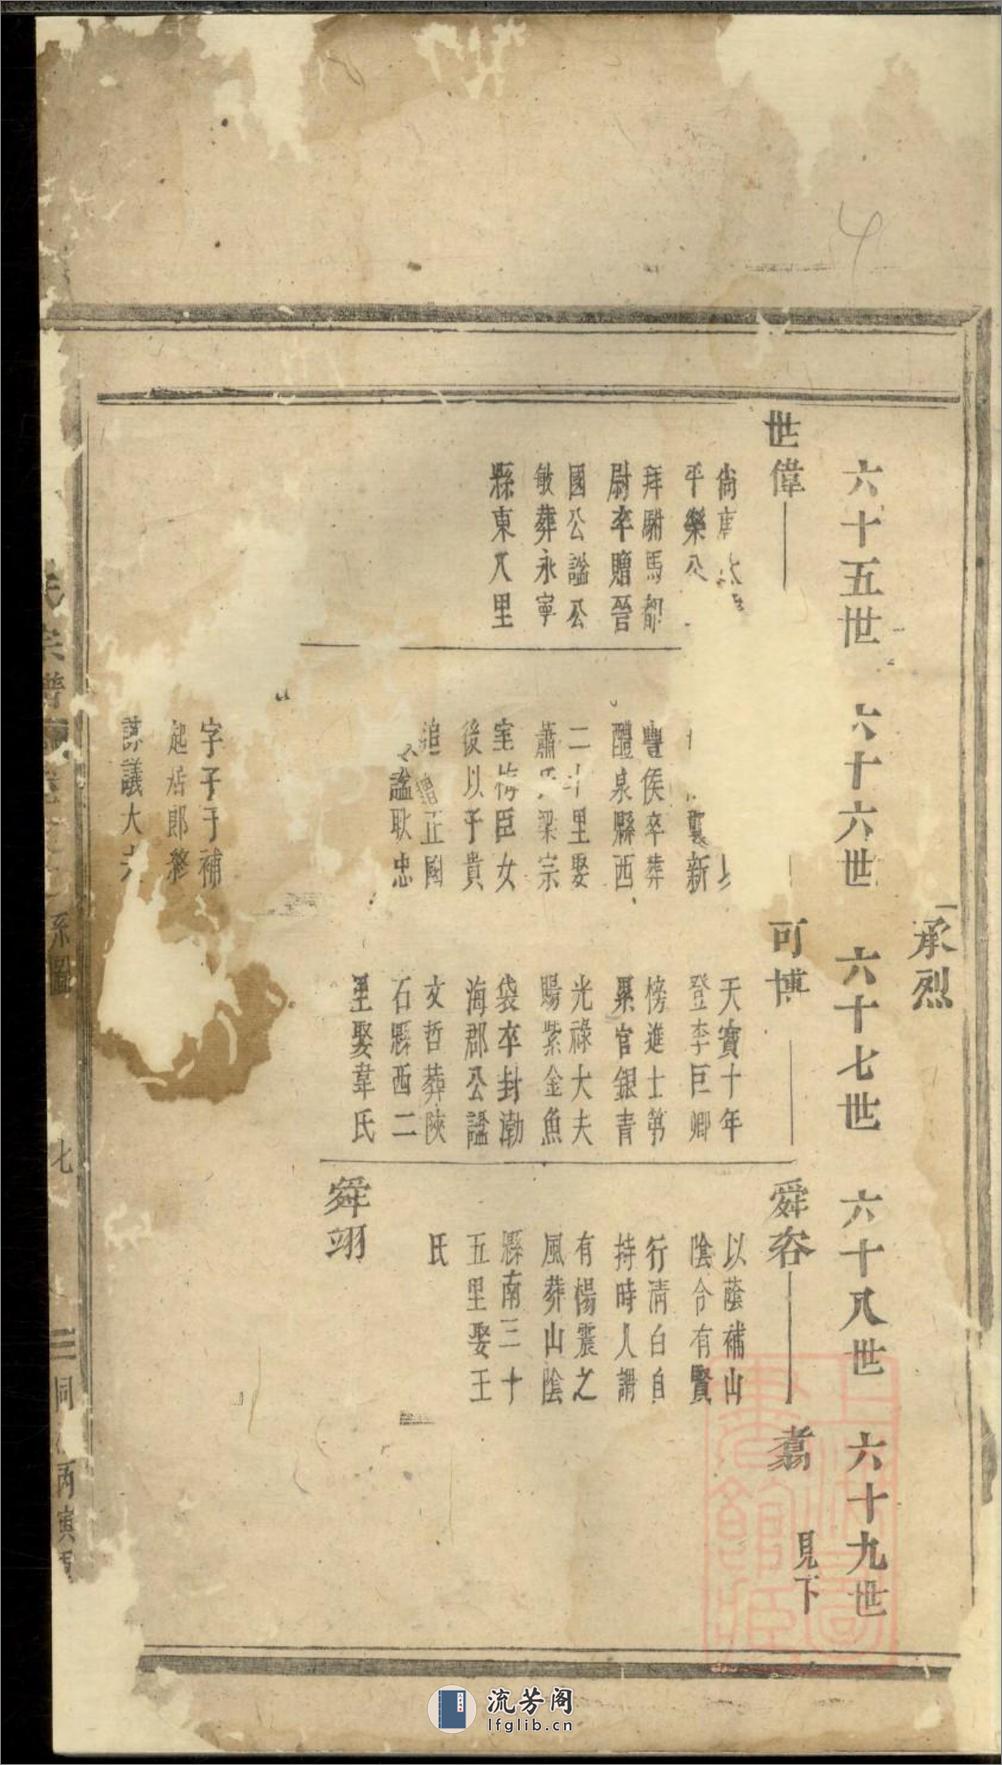 承烈
六十五世 六十六世 六十七世 六十八世 六十九世
世偉
尚唐
平樂公
拜駙馬都
尉卒贈晉
國公諡公
敏葬永寧
縣東八里
襲新
豐侯卒葬
醴泉縣西
二十里娶
蕭氏梁宗
室梅臣女
後以子貴
追贈正國
公諡耿忠
字子于補
起居郎終
諫議大夫
可博
天寶十年
登李巨卿
榜進士第
累官銀青
光祿大夫
賜紫金魚
袋卒封渤
海郡公諡
文哲葬陝
石縣西二
里娶韋氏
舜咨
以蔭補山
陰令有賢
行清白自
持時人謂
有楊震之
風葬山陰
縣南三十
五里娶王
氏
舜翊
翥
見下
宗譜
系圖
七
三同
丙寅
流芳阁
lfglib.cn